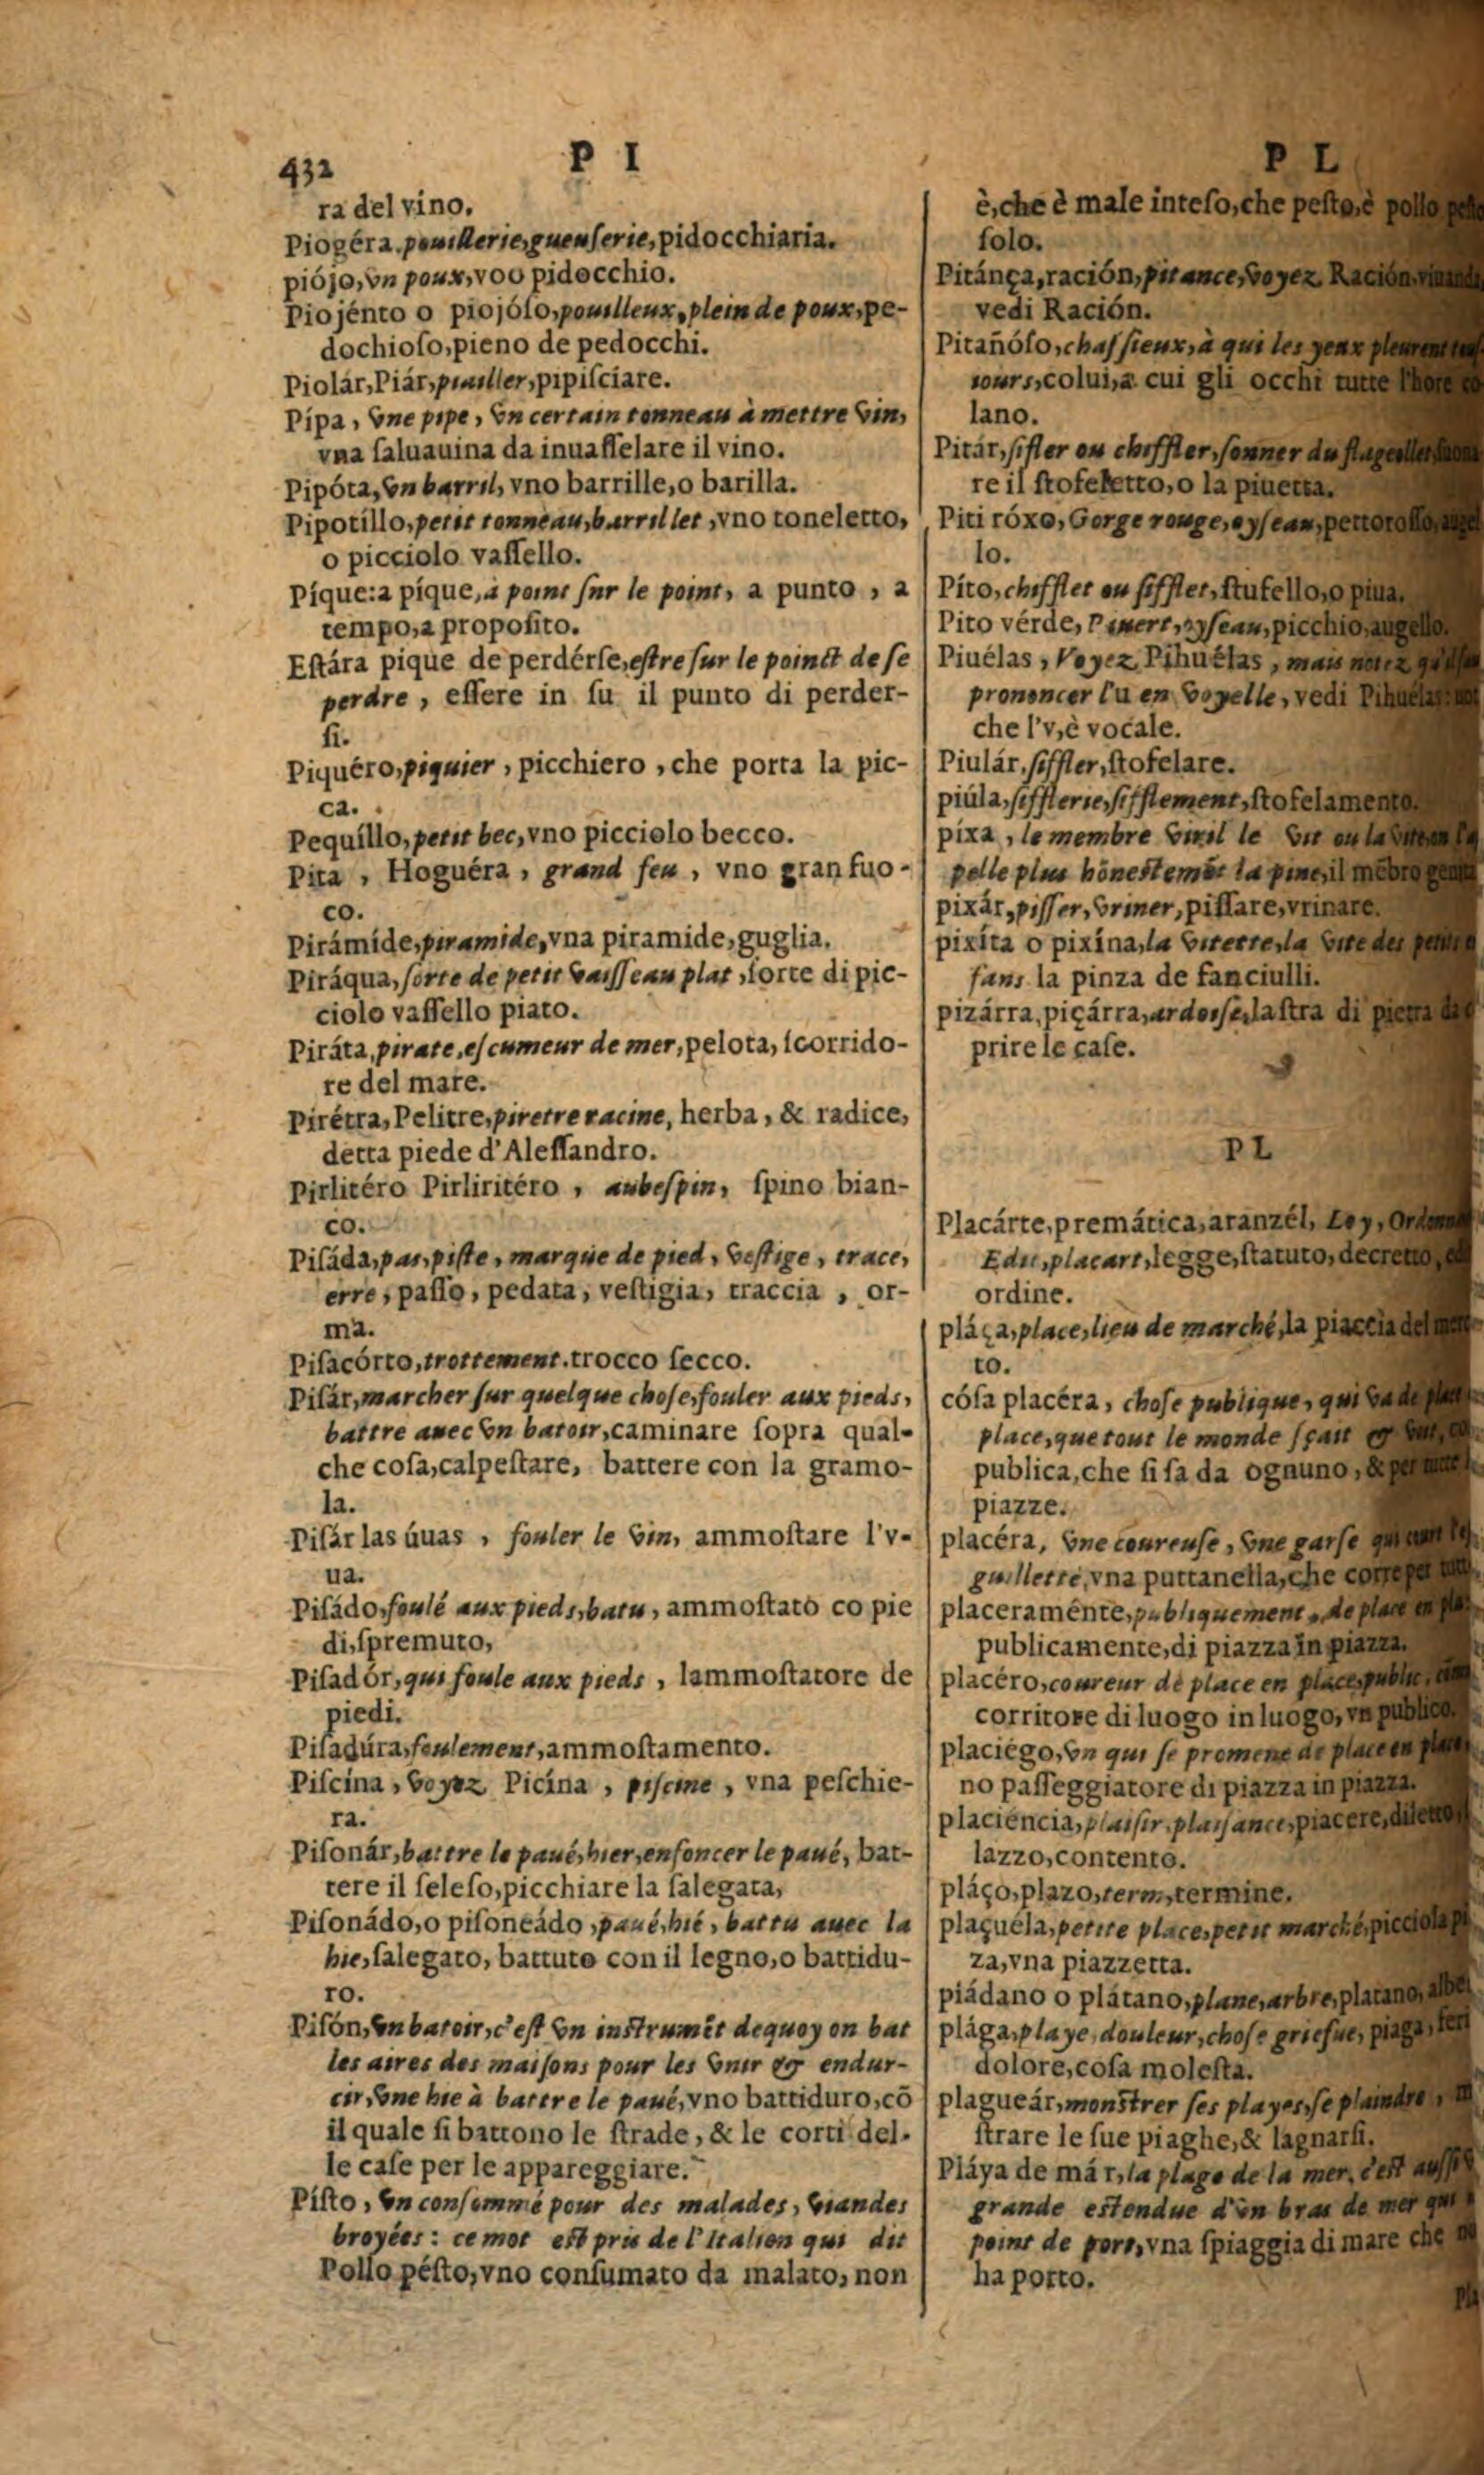 432
P I
P L
ra del vino.
Piogéra, pouillerie, gueuserie, pidocchiaria.
piójo, vn poux, voo pidocchio.
Piojénto o piojóſo, pouilleux, plein de poux, pe-
dochioſo, pieno de pedocchi.
Piolár, Piár, piailler, pipiſciare.
Pípa, vne pipe, vn certain tonneau à mettre vin,
vna ſaluauina da inuaſſelare il vino.
Pipóta, vn barril, vno barrille, o barilla.
Pipotíllo, petit tonneau, barrillet, vno toneletto,
o picciolo vaſſello.
Píque: a píque, à point ſur le point, a punto, a
tempo, a propoſito.
Eſtára pique de perdérſe, eſtre ſur le poinct de ſe
perdre, eſſere in ſu il punto di perder-
ſi.
Piquéro, piquier, picchiero, che porta la pic-
ca.
Pequíllo, petit bec, vno picciolo becco.
Pita, Hoguéra, grand feu, vno gran fuo-
co.
Pirámide, piramide, vna piramide, guglia.
Piráqua, ſorte de petit vaiſſeau plat, ſorte di pic-
ciolo vaſſello piato.
Piráta, pirate, eſcumeur de mer, pelota, ſcorrido-
re del mare.
Pirétra, Pelitre, piretre racine, herba, & radice,
detta piede d'Aleſſandro.
Pirlitéro Pirliritéro, aubeſpin, ſpino bian-
co.
Piſáda, pas, piſte, marque de pied, veſtige, trace,
erre, paſſo, pedata, veſtigia, traccia, or-
ma.
Piſacórto, trottement. trocco ſecco.
Piſár, marcher ſur quelque choſe, fouler aux pieds,
battre auec vn batoir, caminare ſopra qual-
che coſa, calpeſtare, battere con la gramo-
la.
Piſár las úuas, fouler le vin, ammoſtare l'v-
ua.
Piſádo, foulé aux pieds, batu, ammoſtato co pie
di, ſpremuto,
Piſadór, qui foule aux pieds, lammoſtatore de
piedi.
Piſadúra, foulement, ammoſtamento.
Piſcína, voyez Picína, piſcine, vna peſchie-
ra.
Piſonár, battre le paué, hier, enfoncer le paué, bat-
tere il ſeleſo, picchiare la ſalegata,
Piſonádo, o piſoneádo, paué, hié, battu auec la
hie, ſalegato, battuto con il legno, o battidu-
ro.
Piſón, vn batoir, c'eſt vn inſtrumēt dequoy on bat
les aires des maiſons pour les vnir & endur-
cir, vne hie à battre le paué, vno battiduro, cō
il quale ſi battono le ſtrade, & le corti del-
le caſe per le appareggiare.
Piſto, vn conſommé pour des malades, viandes
broyées: ce mot eſt pris de l'Italien qui dit
Pollo péſto, vno conſumato da malato, non
è, che è male inteſo, che peſto, è pollo
ſolo.
Pitánça, ración, pitance, voyez Ración,
vedi Ración.
Pitañóſo, chaſſieux, à qui les yeux pleurent
iours, colui, a cui gli occhi tutte l'hore co-
lano.
Pitár, ſifler ou chiffler, ſonner du flageollet,
re il ſtofeletto, o la piuetta.
Piti róxo, Gorge rouge, oyſeau, pettoroſſo,
lo.
Píto, chifflet ou ſifflet, ſtufello, o piua.
Pito vérde, Piuert, oyſeau, picchio, augello.
Piuélas, Voyez Pihuélas, mais notez
prononcer l'u en voyelle, vedi Pihuélas:
che l'v, è vocale.
Piulár, ſiffler, ſtofelare.
piúla, ſifflerie, ſifflement, ſtofelamento.
píxa, le membre viril le vit ou la
pelle plus hōneſtemēt la pine, il mēbro
pixár, piſſer, vriner, piſſare, vrinare.
pixíta o pixína, la vitette, la vite des
fans la pinza de fanciulli.
pizárra, piçárra, ardoiſe, laſtra di pietra
prire le caſe.
PL
Placárte, premática, aranzél, Loy,
Edit, placart, legge, ſtatuto, decretto,
ordine.
pláça, place, lieu de marché, la piaccia del
to.
cóſa placéra, choſe publique, qui va de
place, que tout le monde ſçait &
publica, che ſi ſa da ognuno, & per
piazze.
placéra, vne coureuſe, vne garſe qui court
guillette, vna puttanella, che corre per
placeraménte, publiquement, de place en
publicamente, di piazza in piazza.
placéro, coureur de place en place, public,
corritore di luogo in luogo, vn publico.
placiégo, vn qui ſe promene de place en place,
no paſſeggiatore di piazza in piazza.
placiéncia, plaiſir, plaiſance, piacere, diletto,
lazzo, contento.
pláço, plazo, term, termine.
plaçuéla, petite place, petit marché, picciola
za, vna piazzetta.
pládano o plátano, plane, arbre, platano,
plága, playe, douleur, choſe grieſue, piaga,
dolore, coſa moleſta.
plagueár, monſtrer ſes playes, ſe plaindre,
ſtrare le ſue piaghe, & lagnarſi.
Pláya de már, la plage de la mer, c'eſt auſſi
grande eſtendue d'vn bras de mer qui
point de port, vna ſpiaggia di mare che
ha porto.